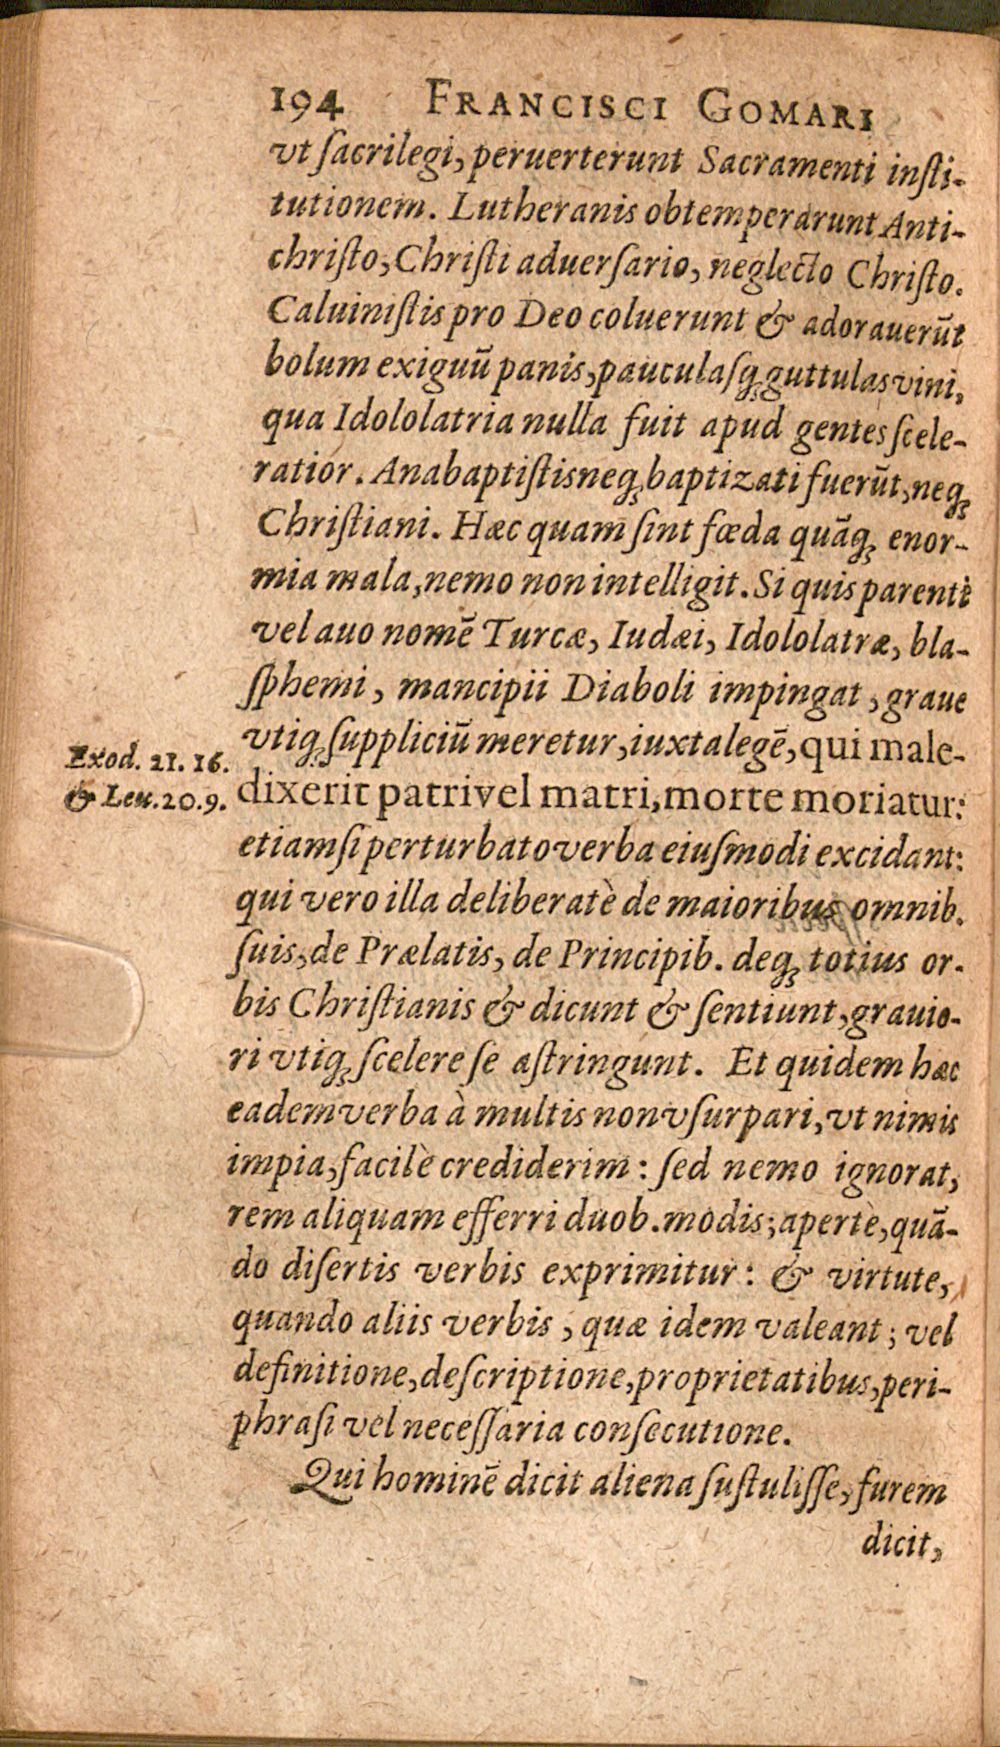 194 FRANCISCI GOMARI
vt ſacrilegi, peruerterunt Sacramenti inſti-
tutionem. Lutheranis obtemperarunt Anti-
chriſto, Chriſti aduerſario, neglecto Chriſto.
Caluiniſtis pro Deo coluerunt & adorauerūt
bolum exiguū panis, pauculaſq́; guttulas vini,
qua Idololatria nulla fuit apud gentes ſcele-
ratior. Anabaptiſtis neq; baptizati fuerūt, neq;
Chriſtiani. Hæc quam ſint fœda quāq; enor-
mia mala, nemo non intelligit. Si quis parenti
vel auo nomē Turcæ, Iudæi, Idololatræ, bla-
ſphemi, mancipii Diaboli impingat, graue
vtiq; ſuppliciū meretur, iuxta legē, qui male-
Exod. 21. 16.
& Leu. 20. 9.
dixerit patri vel matri, morte moriatur:
etiamſi perturbato verba eiuſmodi excidant:
qui vero illa deliberatè de maioribus omnib.
ſuis, de Prælatis, de Principib. deq; totius or-
bis Chriſtianis & dicunt & ſentiunt, grauio-
ri vtiq; ſcelere ſe aſtringunt. Et quidem hæc
eadem verba à multis non vſurpari, vt nimis
impia, facilè crediderim: ſed nemo ignorat,
rem aliquam efferri duob. modis; apertè, quā-
do diſertis verbis exprimitur: & virtute,
quando aliis verbis, quæ idem valeant; vel
definitione, deſcriptione, proprietatibus, peri-
phraſi vel neceſſaria conſecutione.
Qui hominē dicit aliena ſuſtuliſſe, furem
dicit,